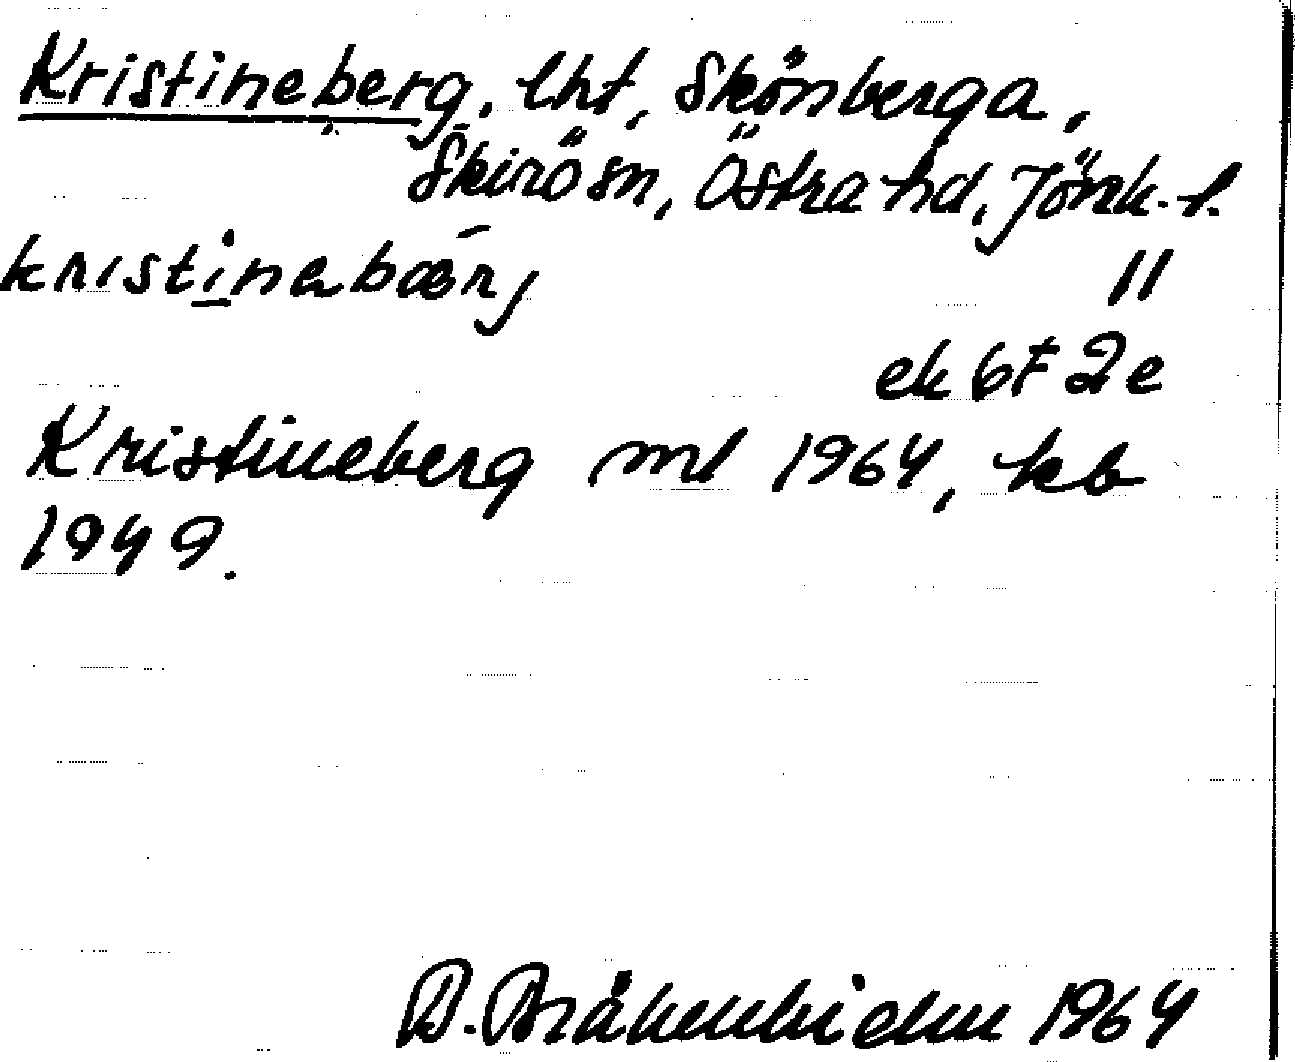 Kristineberg, lht, Skönberga,
Skirö sn, Östra hd, Jönk. l.
kristinabœ̄rj
11
ek 6F 2e
Kristineberg ml 1964, kb
1949.
1964